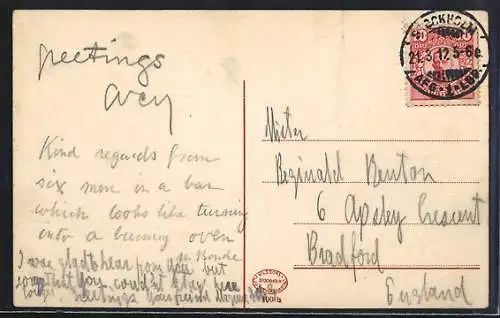 greetings
Kind regards from
six men in a bar
which looks like turning
into a burning oven
I was glad to hear from you but
sorry that you couldn't stay here
longer. greetings your friend
STOCKHOLM
21.3.12 5-6 e.
10
Mister
Reginald Benton
6 Apsley Crescent
Bradford
England